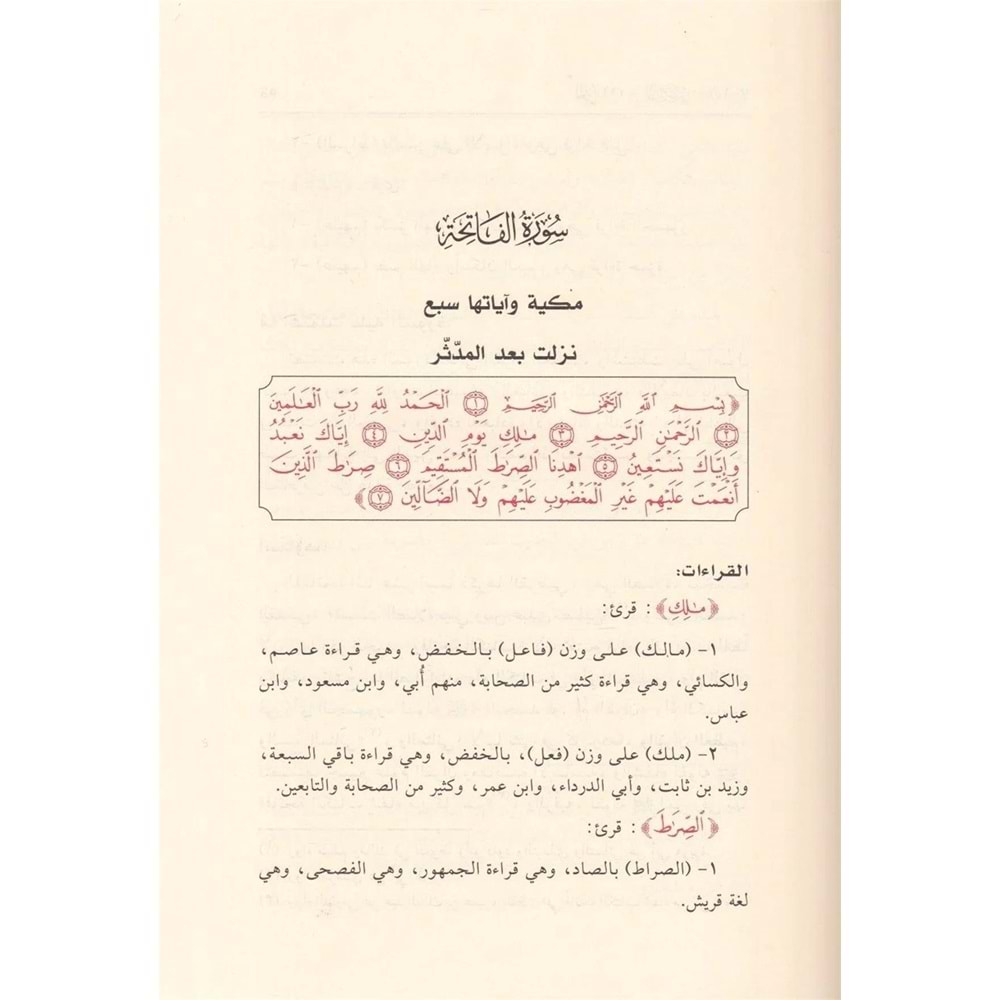 سُورَةُ الفَاتِحَةِ
مكية وآياتها سبع
نزلت بعد المدّثّر
﴿بِسْمِ ٱللَّهِ ٱلرَّحْمَٰنِ ٱلرَّحِيمِ ۝١ ٱلْحَمْدُ لِلَّهِ رَبِّ ٱلْعَٰلَمِينَ
۝٢ ٱلرَّحْمَٰنِ ٱلرَّحِيمِ ۝٣ مَٰلِكِ يَوْمِ ٱلدِّينِ ۝٤ إِيَّاكَ نَعْبُدُ
وَإِيَّاكَ نَسْتَعِينُ ۝٥ ٱهْدِنَا ٱلصِّرَٰطَ ٱلْمُسْتَقِيمَ ۝٦ صِرَٰطَ ٱلَّذِينَ
أَنْعَمْتَ عَلَيْهِمْ غَيْرِ ٱلْمَغْضُوبِ عَلَيْهِمْ وَلَا ٱلضَّآلِّينَ ۝٧﴾
القراءات:
﴿مَٰلِكِ﴾: قرئ:
١- (مالك) على وزن (فاعل) بالخفض، وهي قراءة عاصم،
والكسائي، وهي قراءة كثير من الصحابة، منهم أُبي، وابن مسعود، وابن
عباس.
٢- (ملك) على وزن (فعل)، بالخفض، وهي قراءة باقي السبعة،
وزيد بن ثابت، وأبي الدرداء، وابن عمر، وكثير من الصحابة والتابعين.
﴿ٱلصِّرَٰطَ﴾: قرئ:
١- (الصراط) بالصاد، وهي قراءة الجمهور، وهي الفصحى، وهي
لغة قريش.